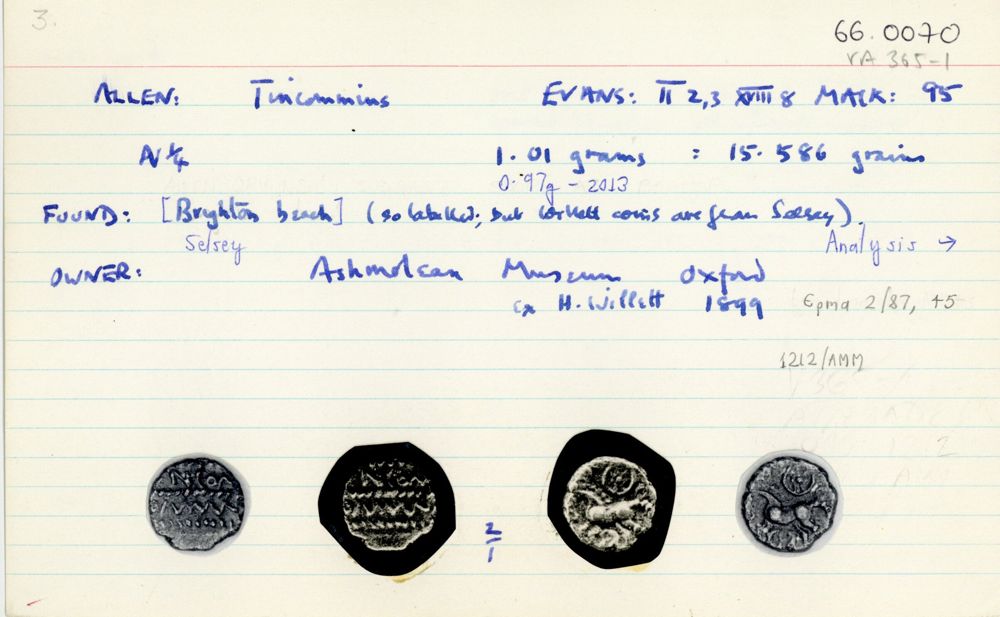 3.
66.0070
VA 365-1
ALLEN: Tincommius EVANS: II 2,3 XVIII 8 MACK: 95
AV ¼
1.01 grams : 15.586 grains
0.97g - 2013
FOUND: [Brighton beach] (so labelled; but Willett coins are from Selsey).
Selsey
Analysis →
OWNER: Ashmolean Museum Oxford
ex H. Willett 1899
Epma 2/87, 45
1212/AMM
2/1